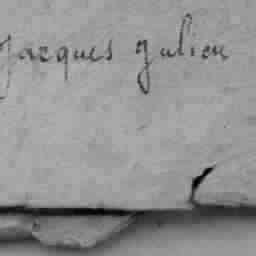 Jacques Julien